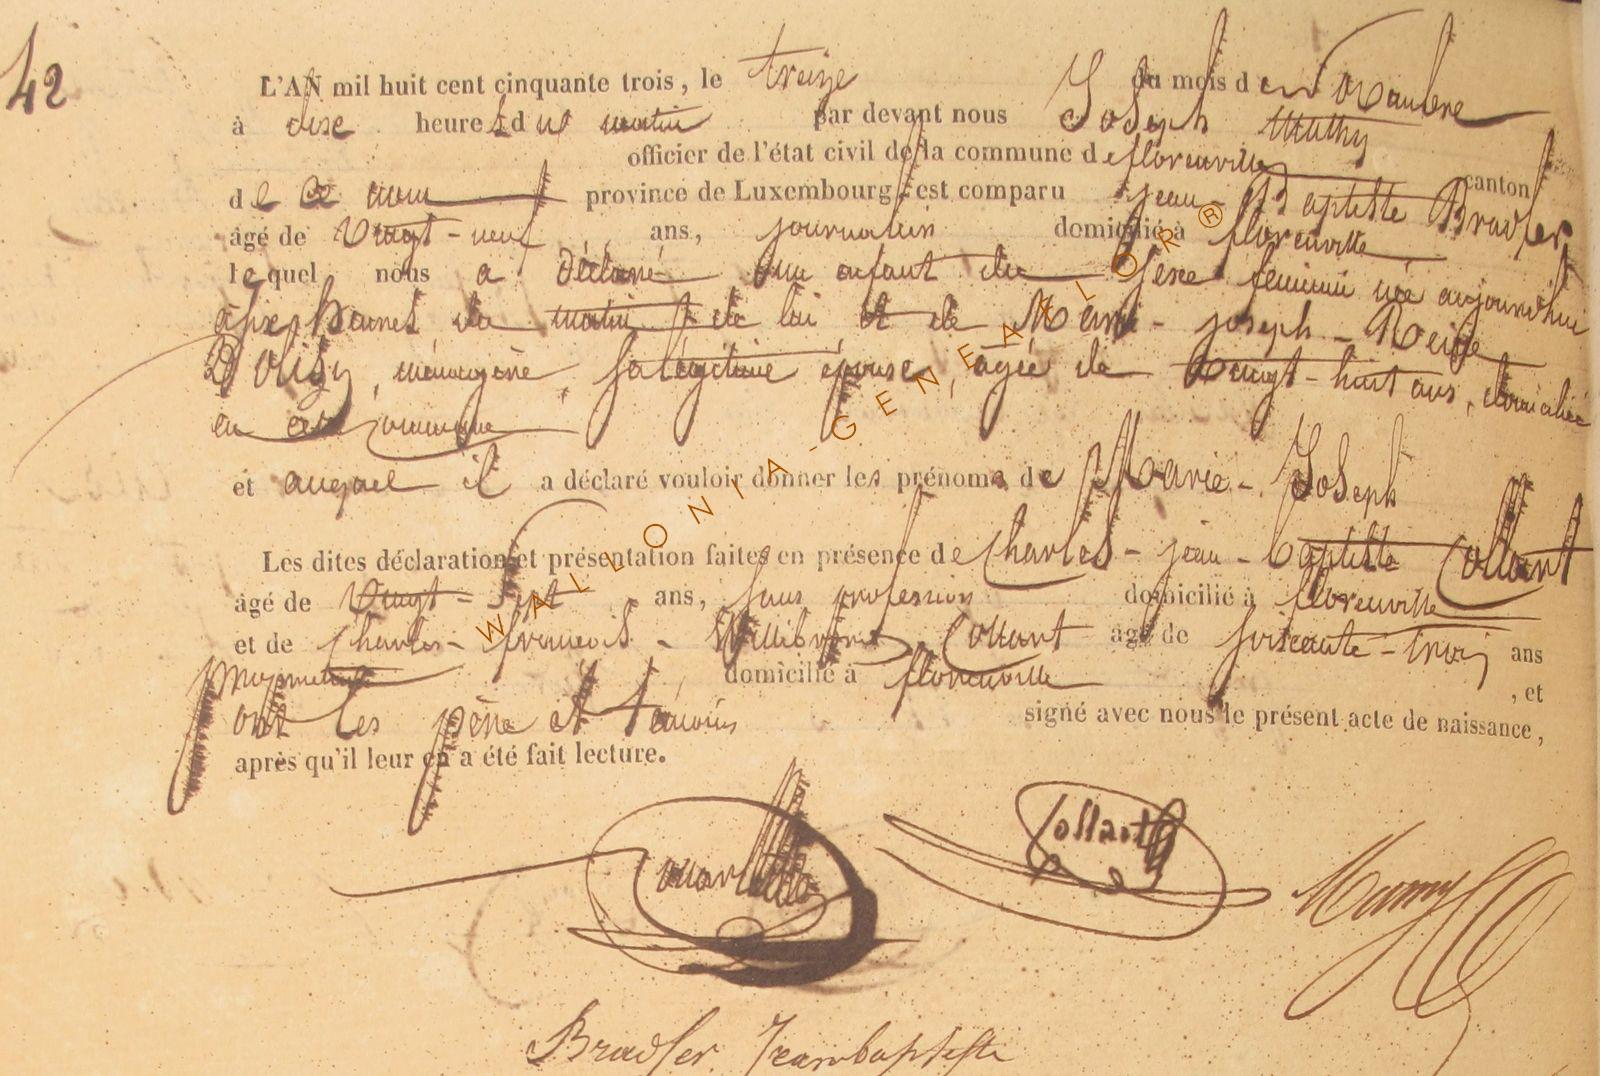 42
L'AN mil huit cent cinquante trois, le treize du mois de Novembre
à dix heures du matin par devant nous Joseph
officier de l'état civil de la commune de florenville canton
de ce nom province de Luxembourg est comparu jean-Baptiste Bradfer
âgé de Vingt-neuf ans, journalier domicilié à florenville
lequel nous a Déclaré un enfant du sexe feminin née aujourd'hui
à six heures du matin de lui et de Marie-joseph-
ménagère, sa légitime épouse, agée de vingt-huit ans, domiciliée
en cette commune
et auquel il a déclaré vouloir donner les prénoms de Marie-Joseph
Les dites déclaration et présentation faites en présence de Charles-jean-baptiste Collart
âgé de Vingt-Sept ans, sans profession domicilié à florenville
et de Charles-francois-Willibrord Collart âgé de soixante-trois ans
propriétaire domicilié à florenville , et
ont les père et témoins signé avec nous le présent acte de naissance,
après qu'il leur en a été fait lecture.
Collart
Bradfer Jeanbaptiste
WALLONIA-GENEALOR®